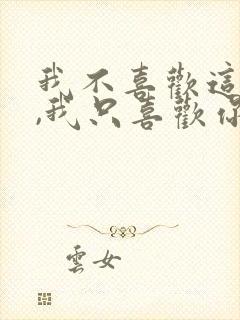 我不喜歡這
,我只喜歡你
雲女